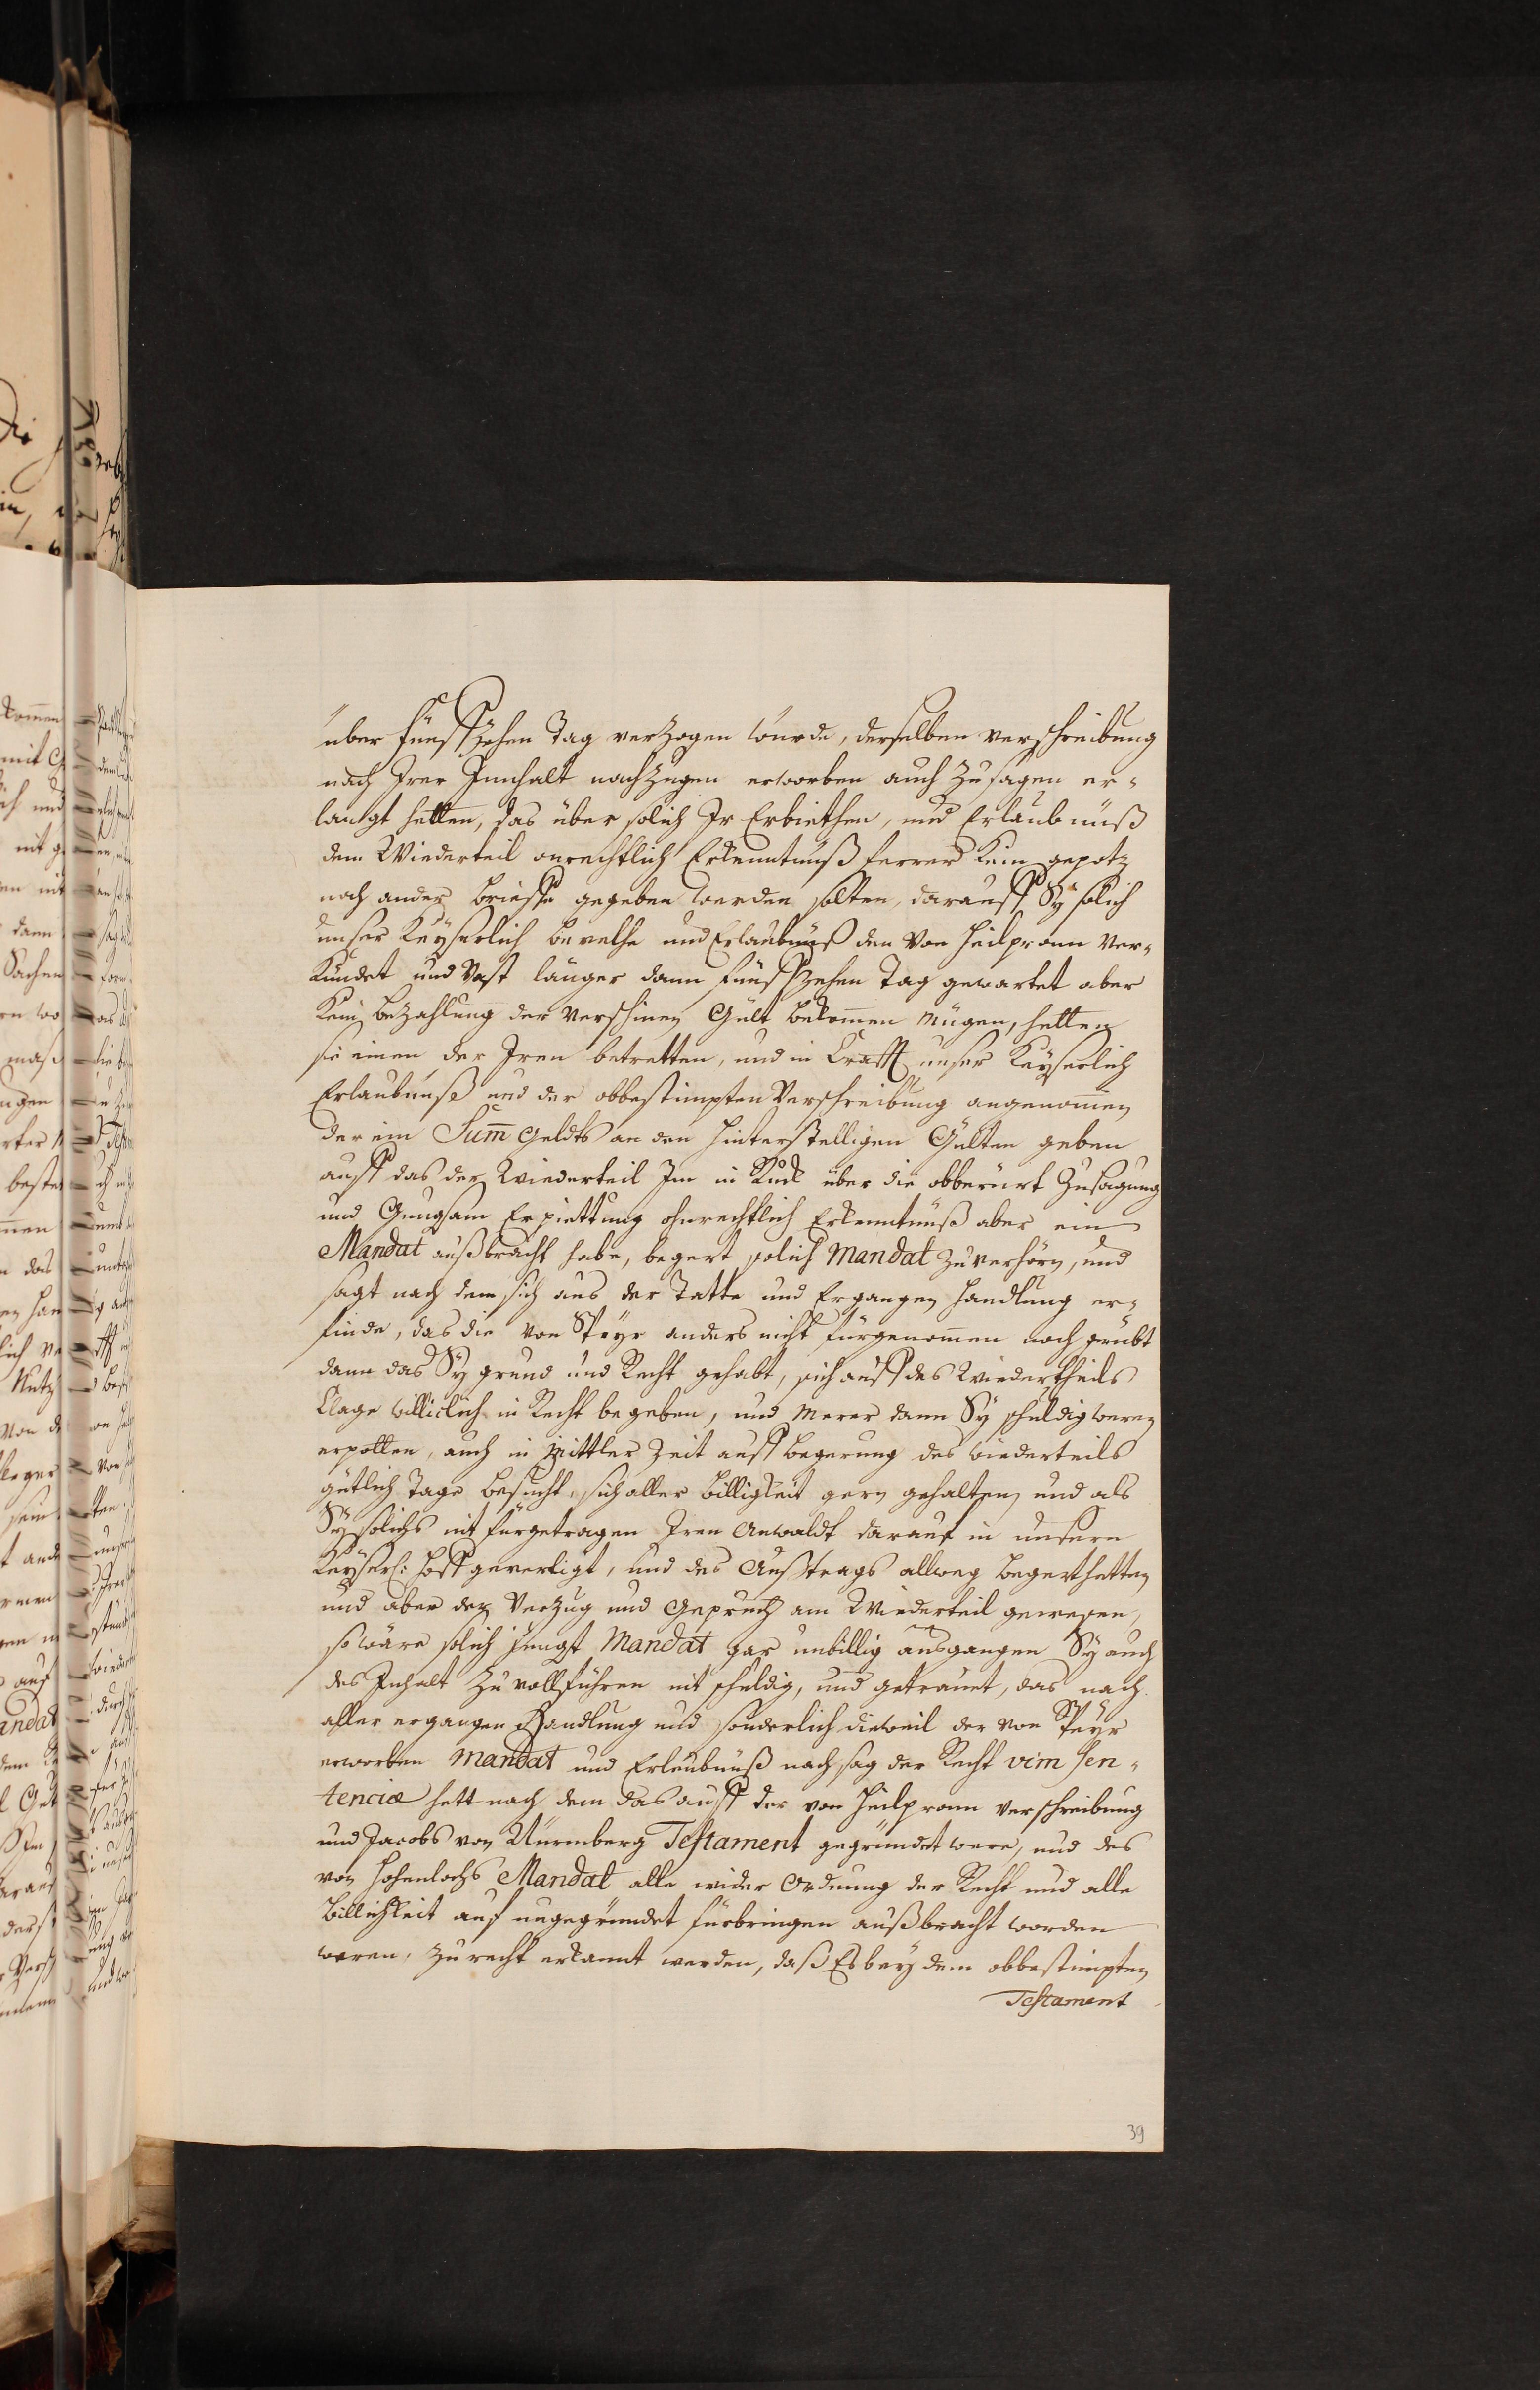 über fünffzehen Tag verzogen wurde, derselben verschreibung
nach Irer Innhalt nachzugen erworben auch zusagen er-
langt hetten, das über solich Ir Erbiethen, und Erlaubnüß
dem Wiederteil onrechtlich Erkenntnüß ferrer kein gepotz
noch ander brieffe gegeben werden solten, darauff Sy solich
unser Keyserlich bevelhe und Erlaubnüß den von Heilpronn ver-
kündet und Vast länger dann fünffzehen Tag gewartet aber
kein bezahlung der verschinen Gült bekomen mügen, hetten
sie einen der Iren betretten, und in Crafft unser Keyserlich
Erlaubnuß und der obbestimpten Verschreibung angenomen
der ein Sum̄ geldts an den hinterstelligen Gülten geben
auff das der Wiederteil Im in Ruck über die obberürt Zusagung
und Gnugsam Erpiettung ohnrechtlich Erkenntnüß aber ein
Mandat außbracht habe, begert solich Mandat zuverhörn, und
sagt nach dem sich aus der Tatte und Ergangen handlung er-
finde, das die von Speyr anders nicht fürgenomen noch geübt
dann das Sy grund und Recht gehabt, sich auff des Wiedertheils
Clage williclich in Recht begeben, und merer dann Sy schuldig weren
erpotten, auch in mittler Zeit auff begerung des wiederteils
gütlich Tage besucht, sich aller billigkeit gern gehalten und als
Sy solichs nit fürgetragen Iren Anwaldt darauf in unsern
Keyserl: hoff geverligt, und des Austrags allweg begert hetten
und aber der Verzug und Gepruch am Wiederteil gewesen,
so wäre solich jungst Mandat gar unbillig ausgangen Sy auch
des Inhalt zu vollführen nit schuldig, und getrauet, das nach
aller ergangen Handlung und sonderlich dieweil der von Speyr
erworben Mandat und Erlaubnüß nach sag der Recht vim sen-
tenciæ hett nach dem das auff der von Heilpronn verschreibung
und Jacobs von Nürmberg Testament gegründet were, und des
von Hohenlochs Mandat alle wider Ordnung der Recht und alle
Billichkeit auf ungegründet fürbringen außbracht worden
weren, zu recht erkannt werden, daß Es bey dem obbestimpten
Testament
39